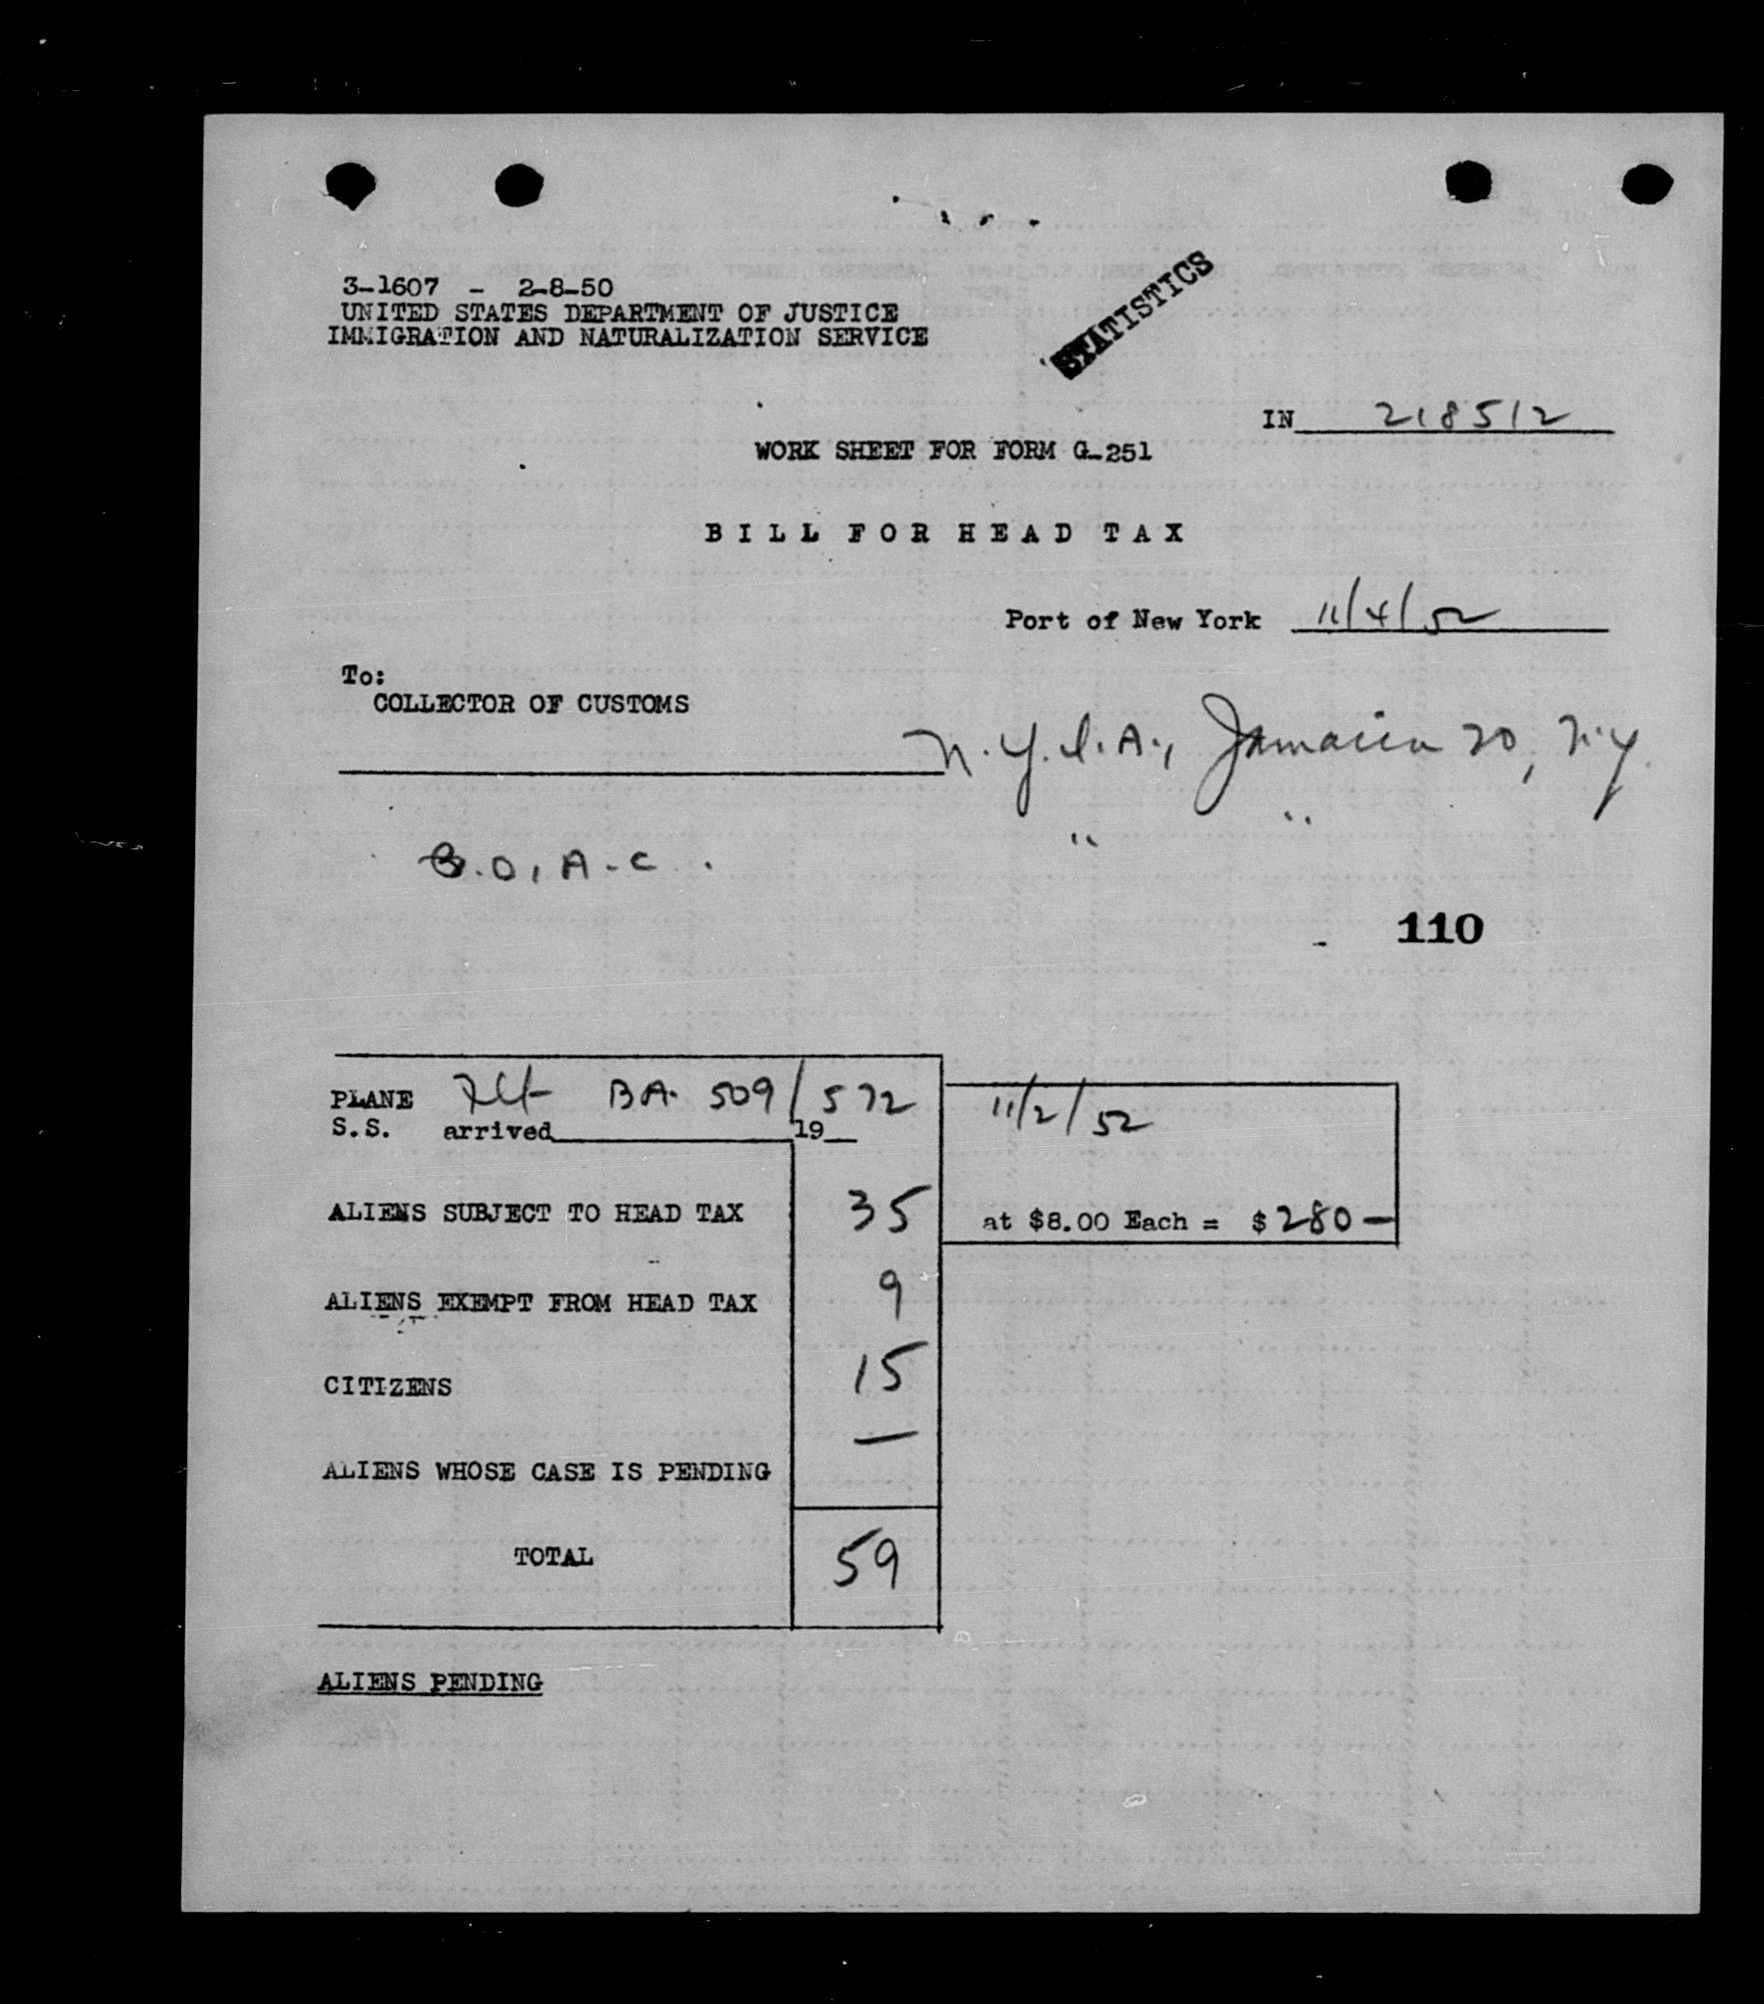 3-1607 - 2-8-50
UNITED STATES DEPARTMENT OF JUSTICE
IMMIGRATION AND NATURALIZATION SERVICE
STATISTICS
IN 218512
WORK SHEET FOR FORM G-251
BILL FOR HEAD TAX
Port of New York 11/4/52
To:
COLLECTOR OF CUSTOMS
N.Y.I.A., Jamaica 30, N.Y.
B.O.A.C. " "
110
PLANE Flt BA 509/572 11/2/52
S.S. arrived 19
ALIENS SUBJECT TO HEAD TAX 35 at $8.00 Each = $280—
ALIENS EXEMPT FROM HEAD TAX 9
CITIZENS 15
ALIENS WHOSE CASE IS PENDING —
TOTAL 59
ALIENS PENDING